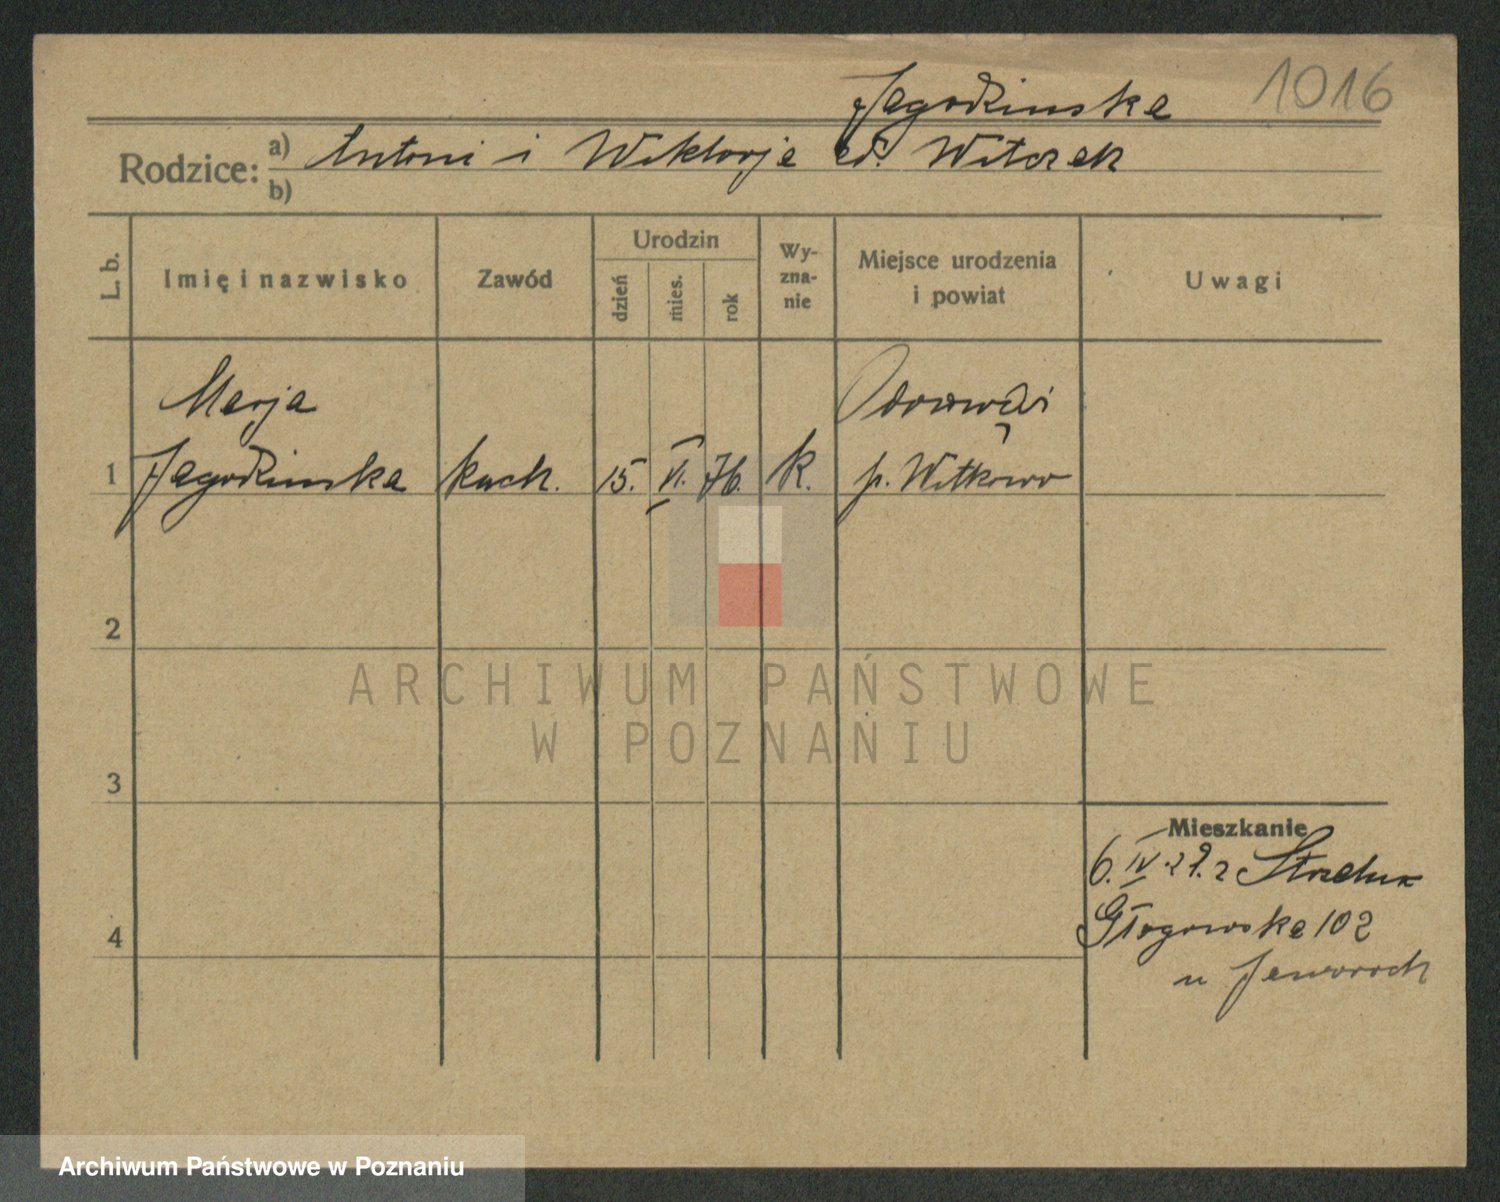 1016
Jagodzinska
Rodzice: a) Antoni i Wiktorja zd. Witczak
b)
L. b. Imię i nazwisko Zawód Urodzin dzień mies. rok Wyznanie Miejsce urodzenia i powiat Uwagi
Marja
1 Jagodzinska kuch. 15. VI. 76. k. p. Witkowo
2
3
4
Mieszkanie
6. IV. 29. z
Głogowska 102
u
ARCHIWUM PAŃSTWOWE
W POZNANIU
Archiwum Państwowe w Poznaniu